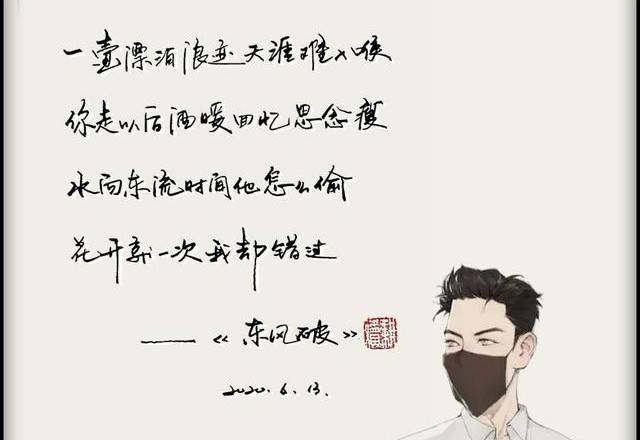 一壶漂泊浪迹天涯难入喉
你走以后酒暖回忆思念瘦
水向东流时间他怎么偷
花开就一次我却错过
——《东风破》
2020.6.13.